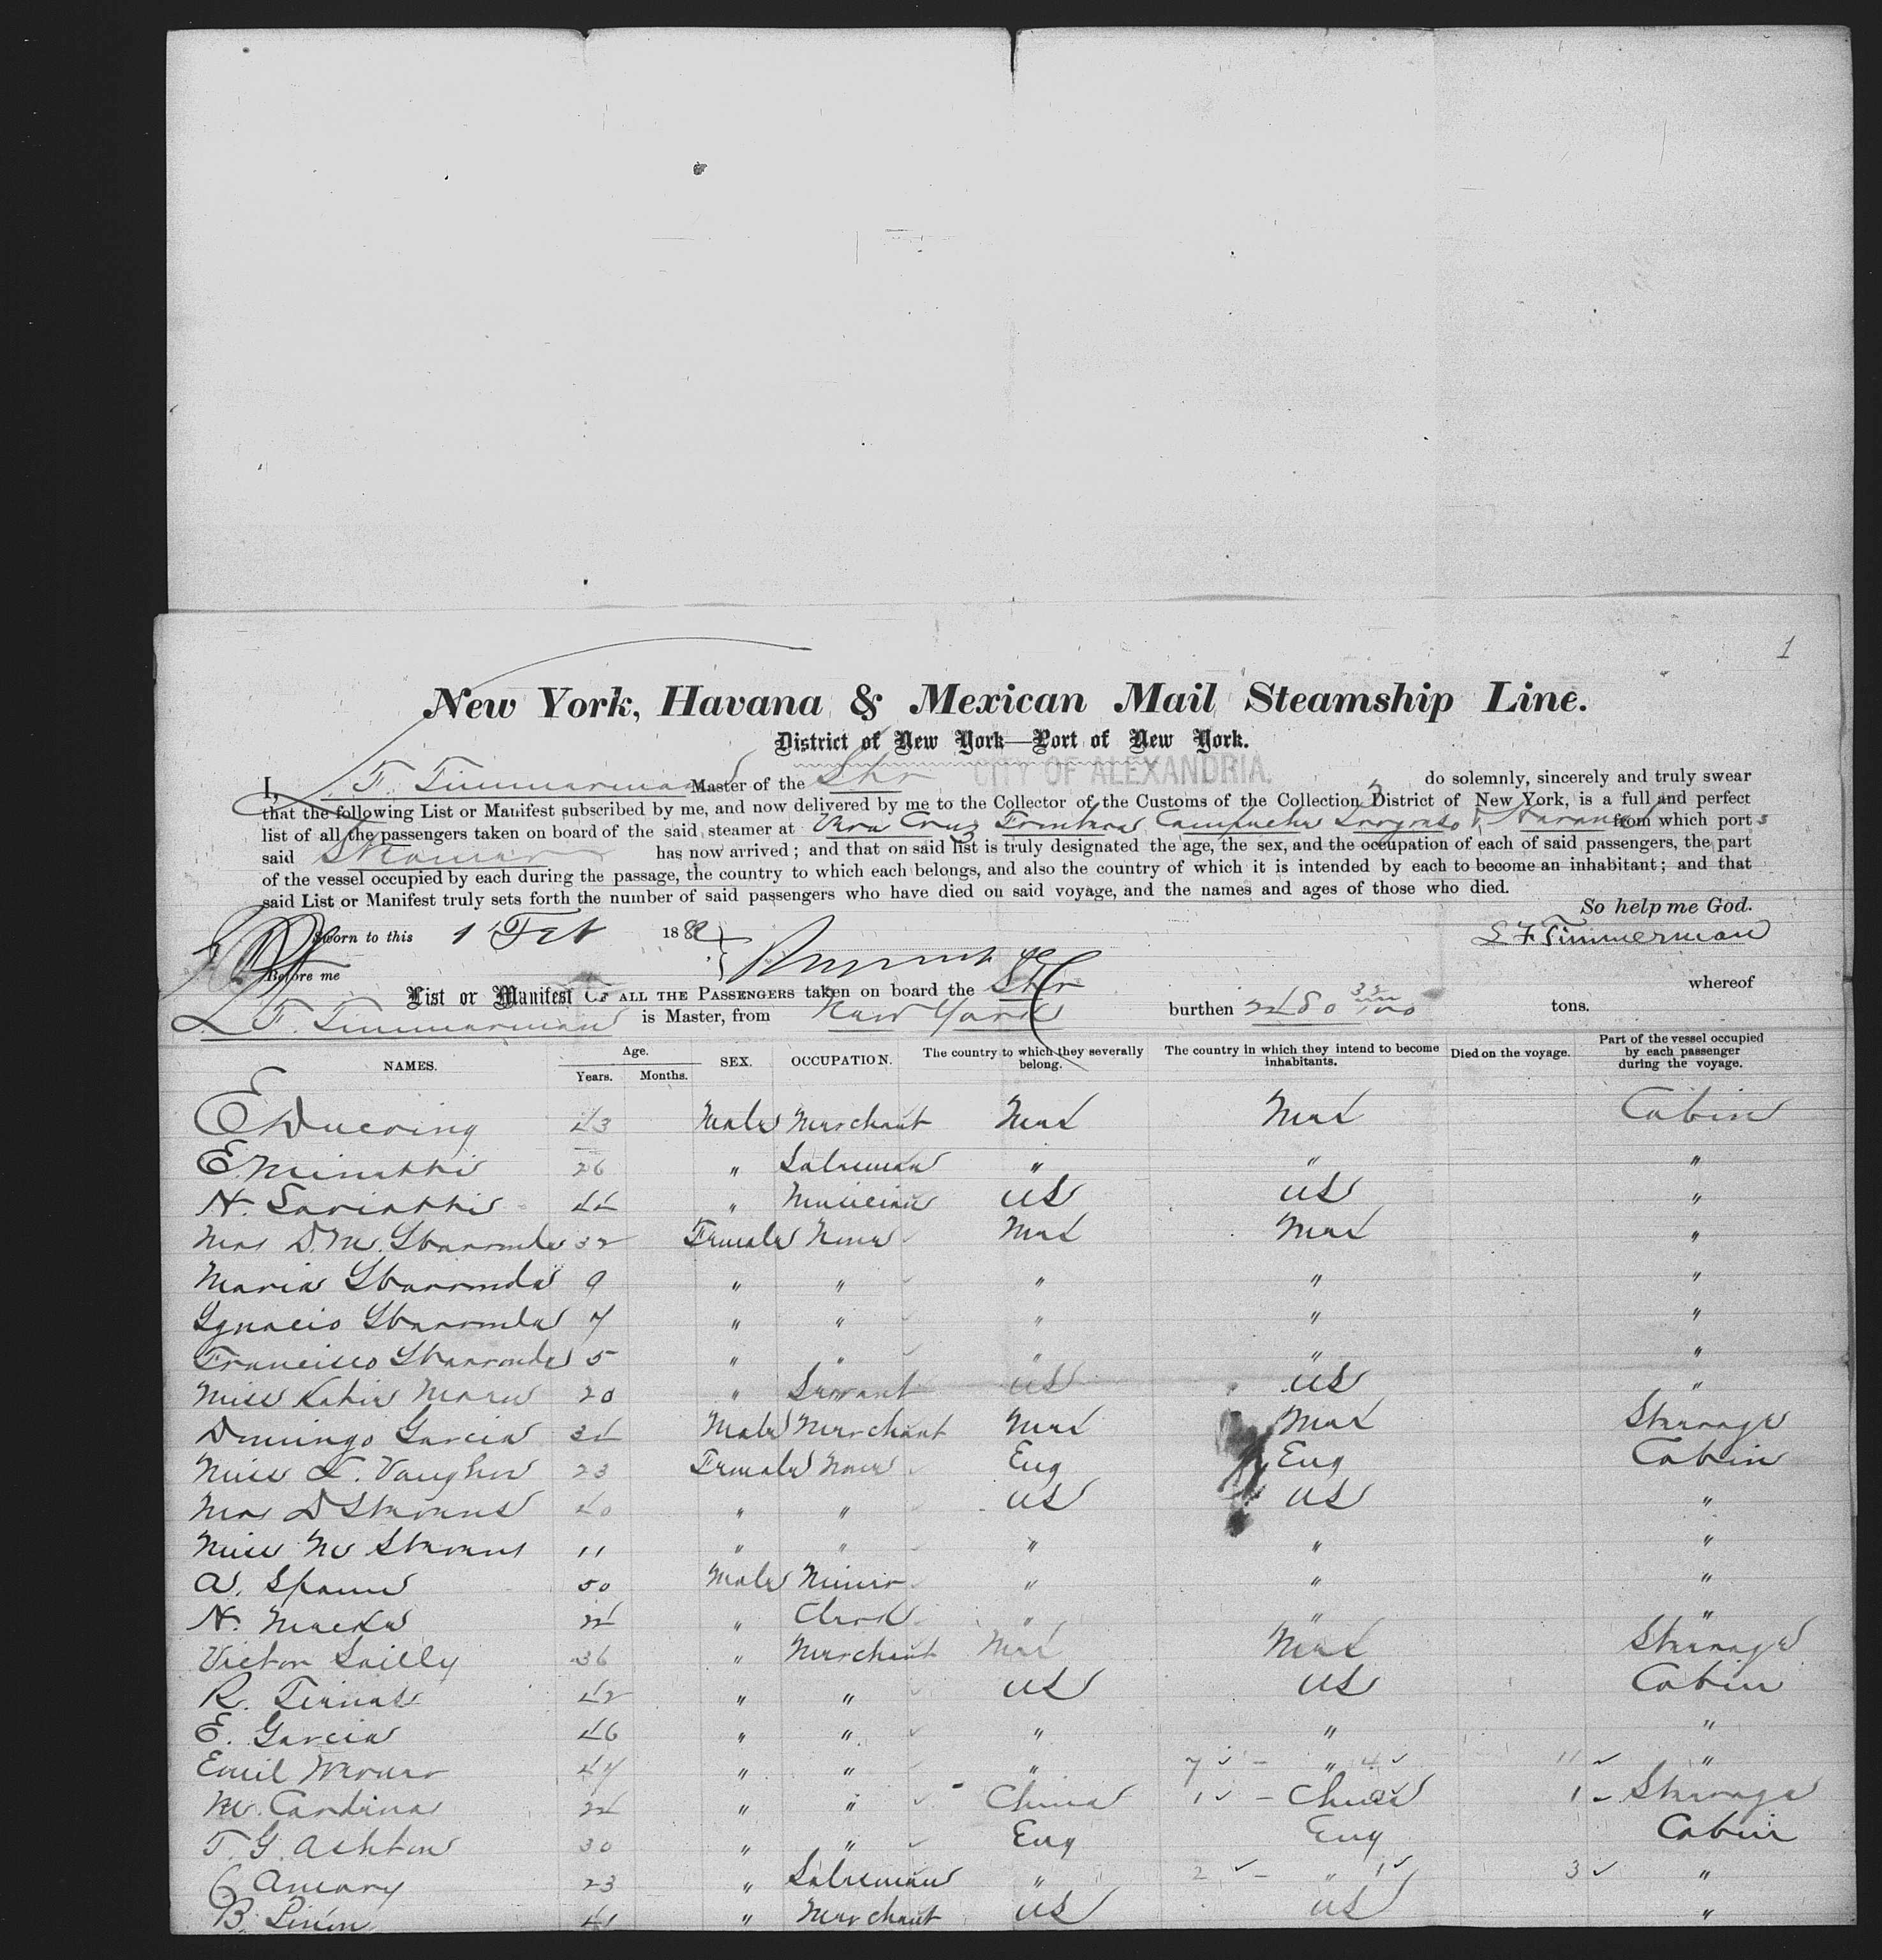 1
New York, Havana & Mexican Mail Steamship Line.
District of New York—Port of New York.
I, F. Timmerman Master of the Str CITY OF ALEXANDRIA. do solemnly, sincerely and truly swear
that the following List or Manifest subscribed by me, and now delivered by me to the Collector of the Customs of the Collection District of New York, is a full and perfect
list of all the passengers taken on board of the said steamer at Vera Cruz Frontera Campeche Progreso & Havana from which ports
said Steamer has now arrived; and that on said list is truly designated the age, the sex, and the occupation of each of said passengers, the part
of the vessel occupied by each during the passage, the country to which each belongs, and also the country of which it is intended by each to become an inhabitant; and that
said List or Manifest truly sets forth the number of said passengers who have died on said voyage, and the names and ages of those who died.
So help me God.
Sworn to this 1 Feb 188 L F Timmerman
Before me
List or Manifest OF ALL THE PASSENGERS taken on board the Str whereof
L. F. Timmerman is Master, from New York burthen 2480 tons.
NAMES. Age. Years. Months. SEX. OCCUPATION. The country to which they severally belong. The country in which they intend to become inhabitants. Died on the voyage. Part of the vessel occupied by each passenger during the voyage.
E Duering 43 Male Merchant Mex Mex Cabin
E. 26 " Salesman " " "
N. 44 " Musician US US "
Mrs D. M. 32 Female None Mex Mex "
Maria 9 " " " " "
Ignacio 7 " " " " "
Francisco 5 " " " " "
Miss Katie 20 " Servant US US "
Domingo Garcia 34 Male Merchant Mex Mex Steerage
Miss L. Vaughn 23 Female None Eng Eng Cabin
Mrs D Stevens 40 " " US US "
Miss M Stevens 11 " " " " "
A. Spann 50 Male Miner " " "
N. 24 " Clerk " " "
Victor Lailly 36 " Merchant Mex Mex Steerage
R. 42 " " US US Cabin
E. Garcia 46 " " " " "
Emil Werner 47 " " " 7 " 4 11 "
M. Cardina 24 " " China 1 China 1 Steerage
T. G. Ashton 30 " " Eng Eng Cabin
C. Amory 23 " Salesman " 2 " 1 3 "
B. 41 " Merchant US US "